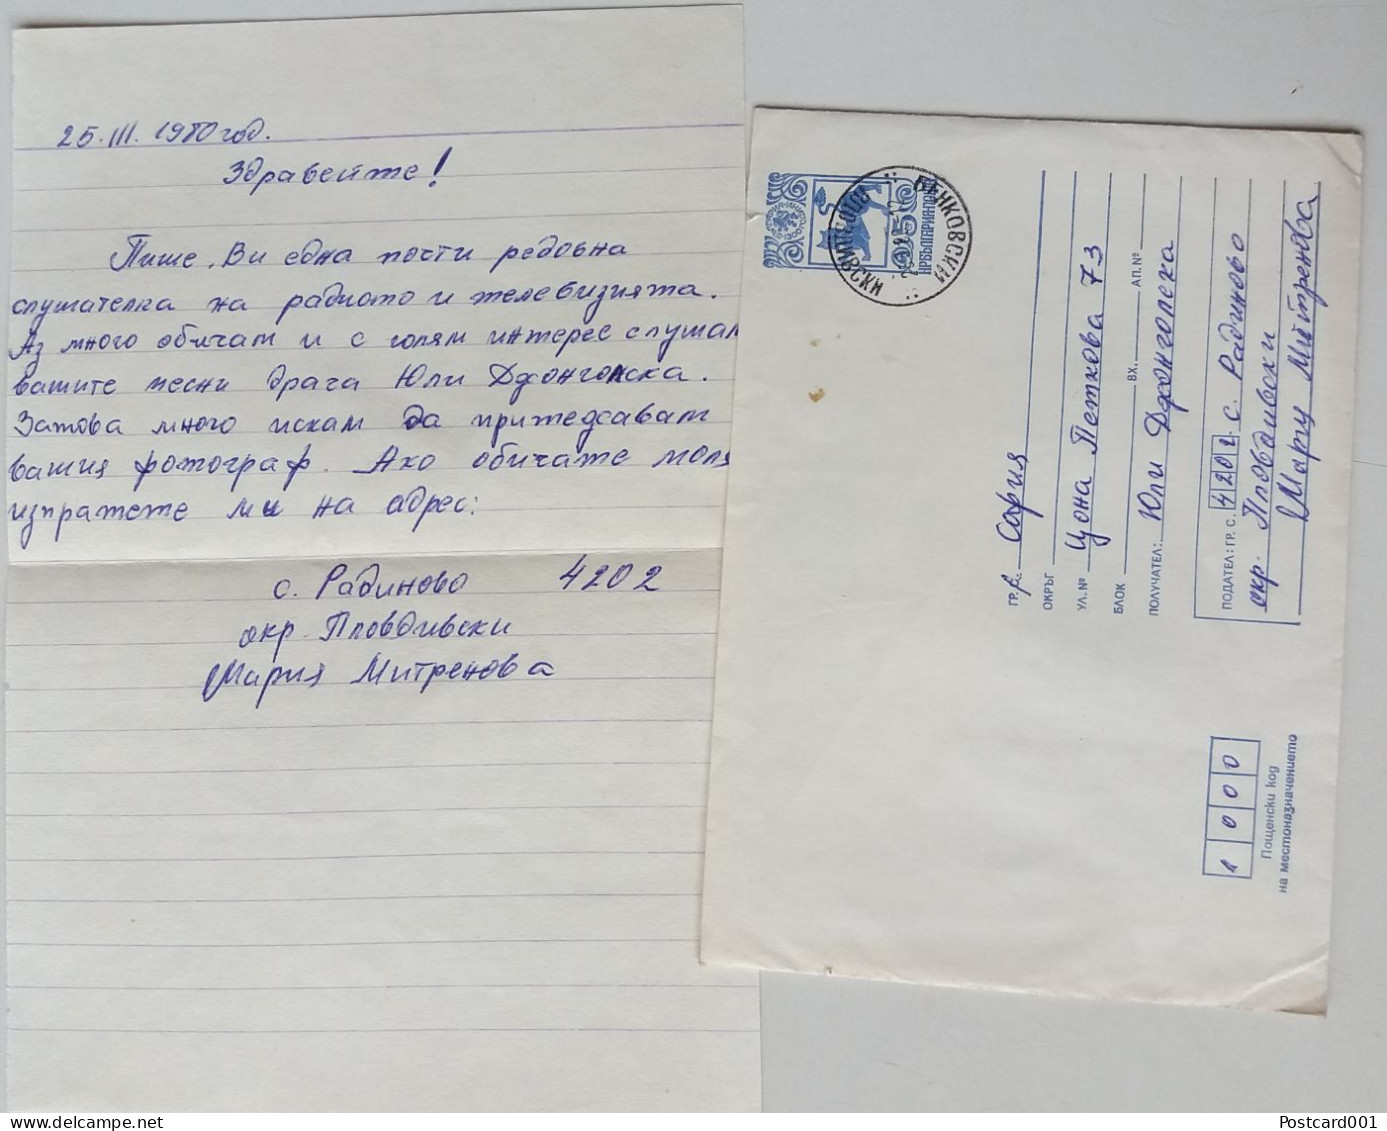 25. III. 1980 год.
Здравейте!
Пише Ви една почти редовна
слушателка на радиото и телевизията.
Аз много обичам и с голям интерес слушам
вашите песни драга Юли Джонголска.
Затова много искам да притежавам
вашия фотограф. Ако обичате моля
изпратете ми на адрес:
с. Радиново 4202
окр. Пловдивски
Мария Митренова
НРБЪЛГАРИЯ
5
ГР. София
ОКРЪГ
УЛ.№ Цона Петкова 73
БЛОК ВХ. АП.№
ПОЛУЧАТЕЛ: Юли Джонголска
ПОДАТЕЛ: ГР. С. 4202 с. Радиново
окр. Пловдивски
Митренова
1000
Пощенски код
на местоназначението
Postcard001